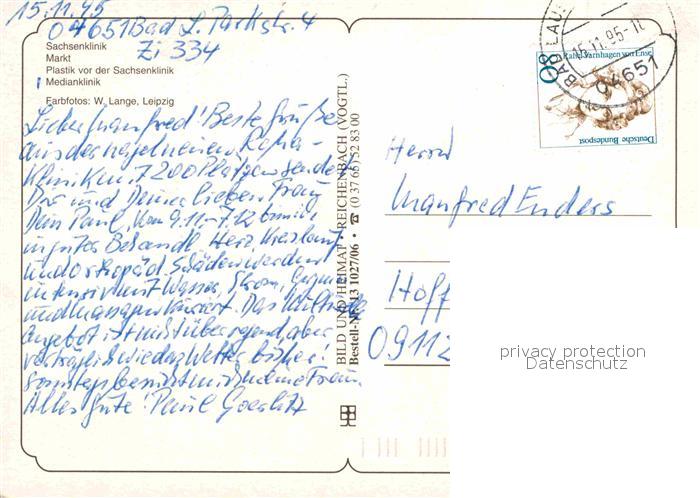 15.11.95
04651 Bad L. Parkstr. 4
Zi 334
Sachsenklinik
Markt
Plastik vor der Sachsenklinik
Medianklinik
Farbfotos: W. Lange, Leipzig
Lieber Manfred! Beste Grüße
aus der nagelneuen Reha-
Klinik m. 200 Plätzen sendet
Dir und Deiner lieben Frau
Dein Paul. Vom 9.11.-7.12 bin ich
in guter Behandl. Herz Kreislauf
und orthopäd. Schäden werden
intensiv mit Wasser, Strom,
und Massagen kuriert. Das
Angebot ist nicht überragend, aber
verträglich wie das Wetter bisher!
Sonntags besucht mich meine Frau.
Alles Gute! Paul Goerlitz
BILD UND HEIMAT · REICHENBACH (VOGTL.)
Bestell-Nr. 13 1027/06 • ☎ (0 37 65) 52 83 00
80
Rahel Varnhagen von Ense
Deutsche Bundespost
BAD LAUS
15.11.95-1
04651
Herrn
Manfred Enders
Hoff
09112
privacy protection
Datenschutz